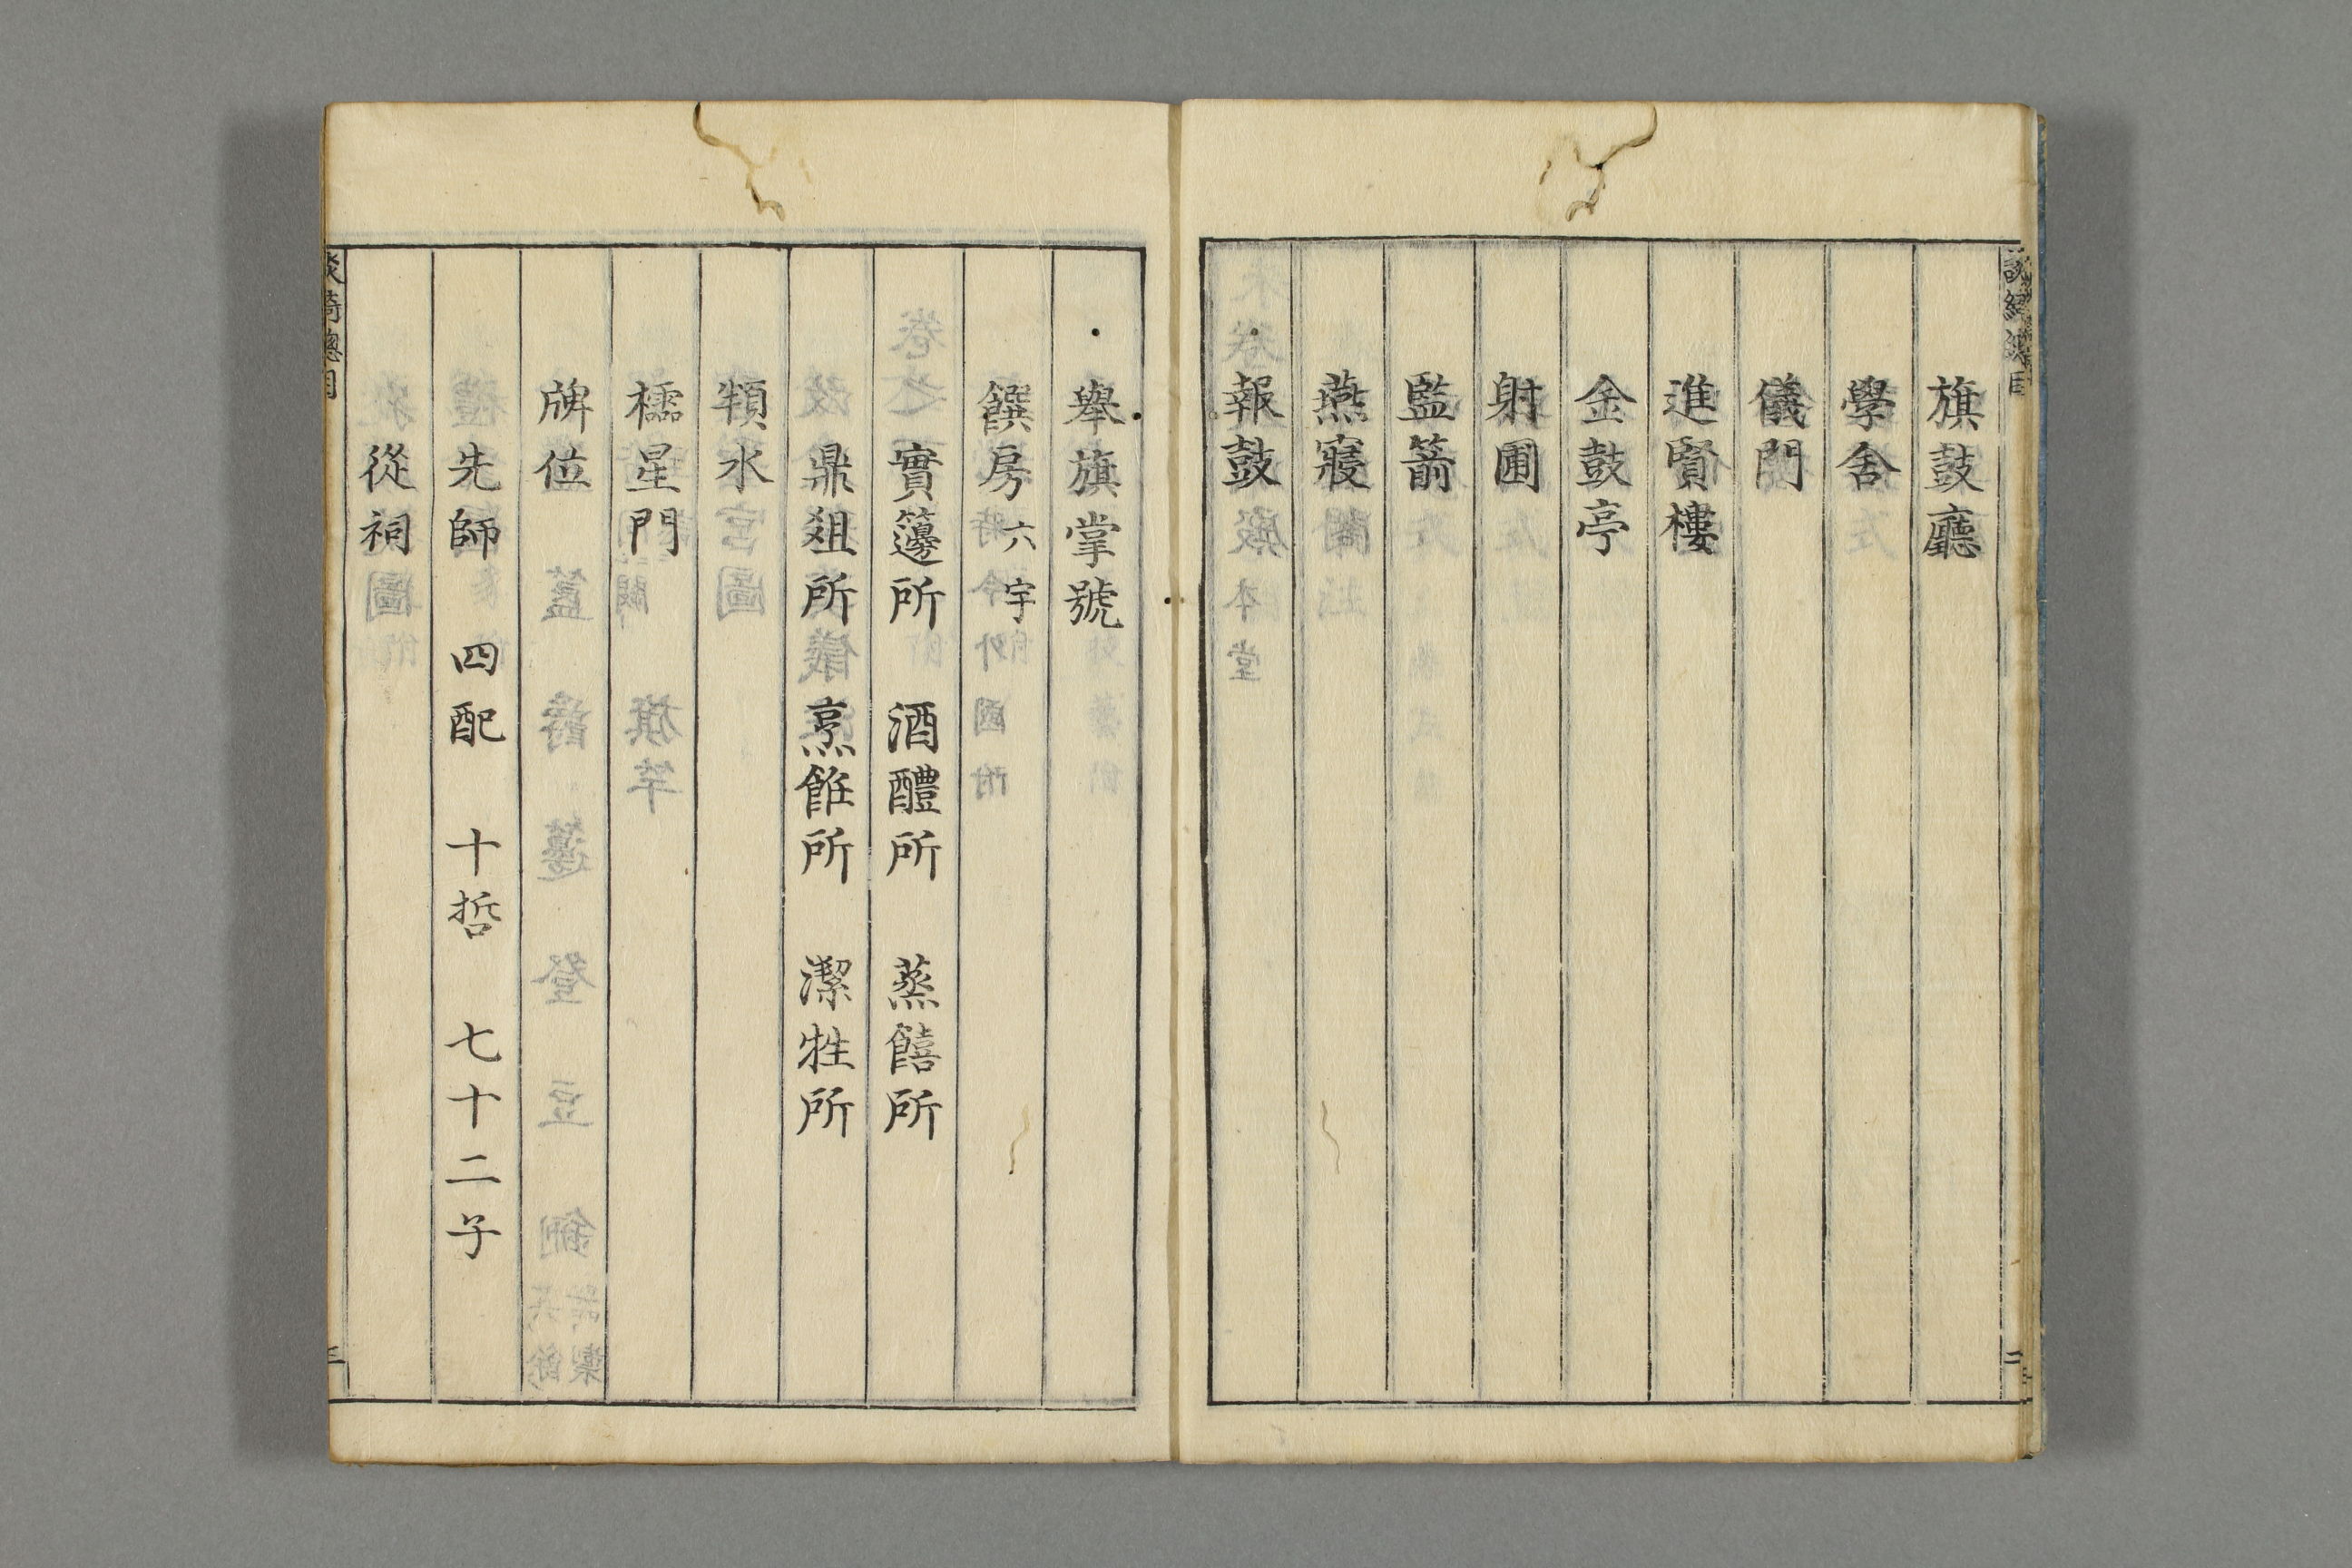 旗鼓廳
學舍
儀門
進賢樓
金鼓亭
射圃
監箭
燕寢
報鼓
舉旗掌號
饌房 六宇
實籩所 酒醴所 蒸饎所
鼎俎所 烹飪所 潔牲所
頖水
櫺星門
牌位
先師 四配 十哲 七十二子
從祠
二
三